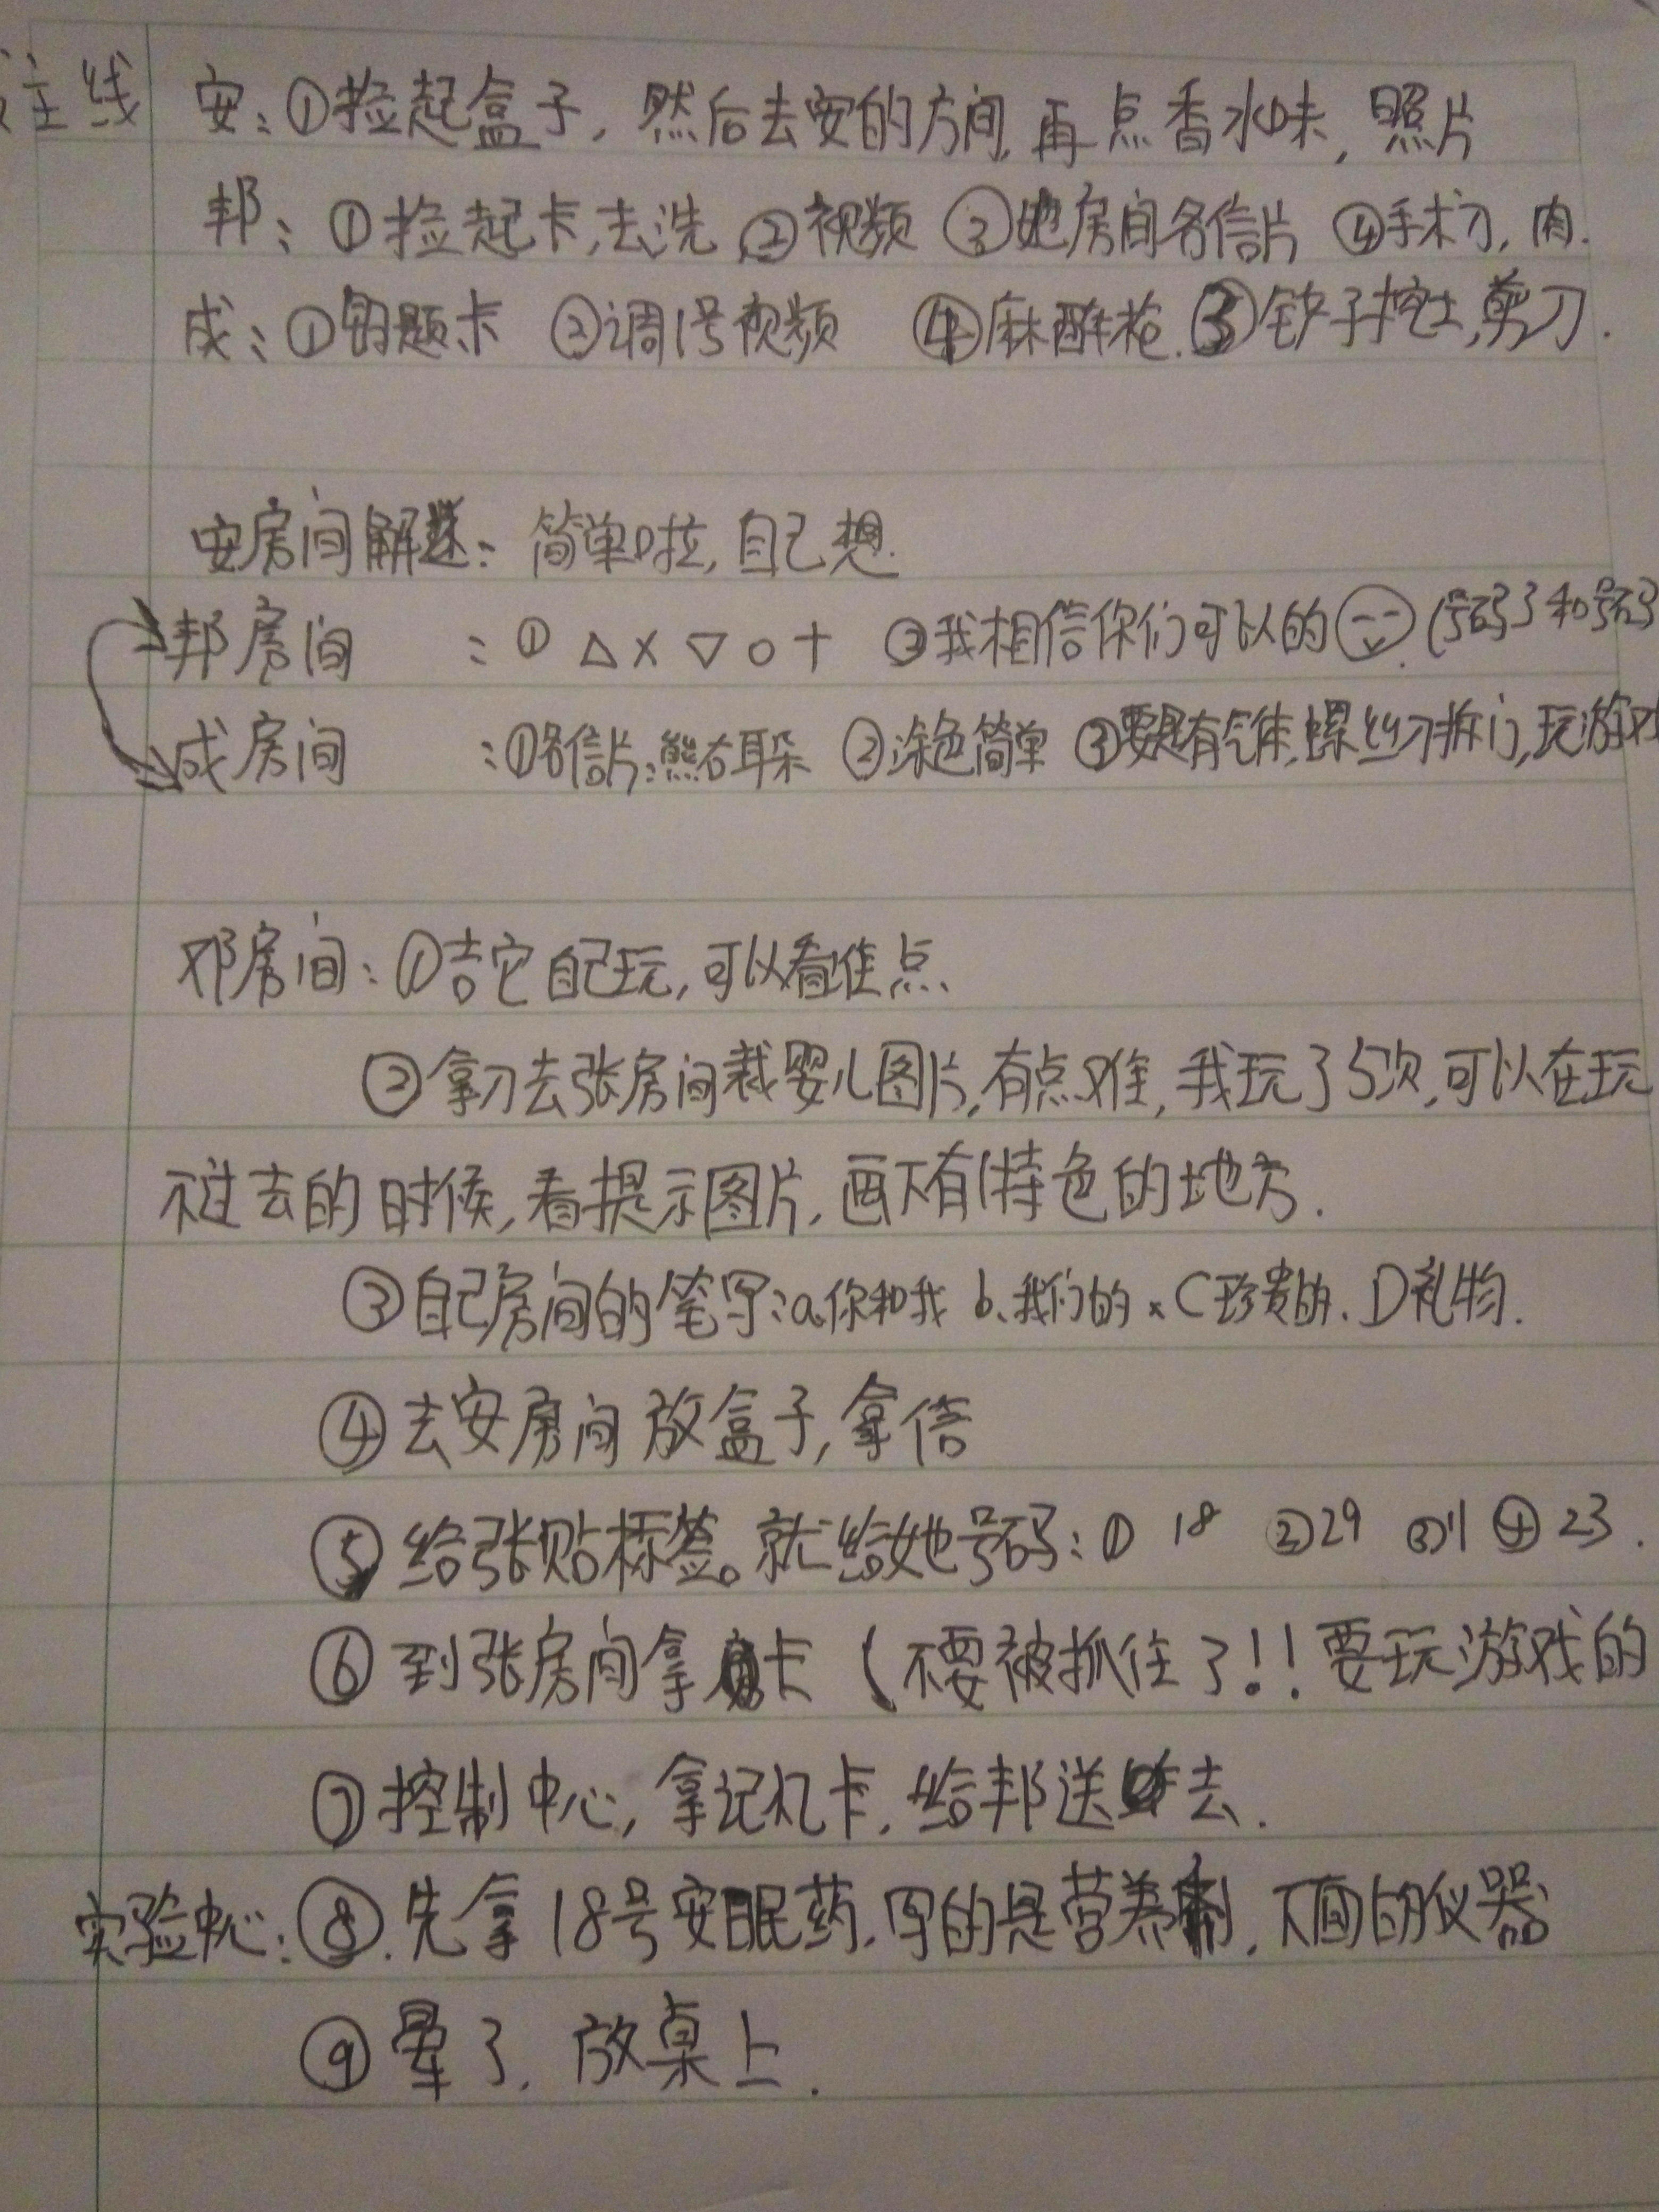 主线
安:①捡起盒子,然后去安的方间,再点香水味,照片
邦:①捡起卡,去洗 ②视频 ③她房间名信片 ④手术刀,肉.
成:①题卡 ②调1号视频 ④麻醉枪.③铲子挖土,剪刀.
安房间解迷:简单啦,自己想.
邦房间:① △×▽○+ ②我相信你们可以的(号码3和号码
成房间:①名信片:熊右耳朵 ②涂色简单 ③要是有气体,螺丝刀拆门,玩游戏
邓房间:①吉它自己玩,可以看准点、
②拿刀去张房间裁婴儿图片,有点难,我玩了5次,可以在玩
不过去的时候,看提示图片,画下有特色的地方.
③自己房间的笔写:a.你和我 b、我们的、C珍贵的.D礼物.
④去安房间放盒子,拿信
⑤给张贴标签。就给她号码:① 18 ②29 ③11 ④23.
⑥到张房间拿卡(不要被抓住了!!要玩游戏的
⑦控制中心,拿记札卡,给邦送去.
实验中心:⑧.先拿18号安眠药.写的是营养剂,下面的仪器
⑨晕了.放桌上.